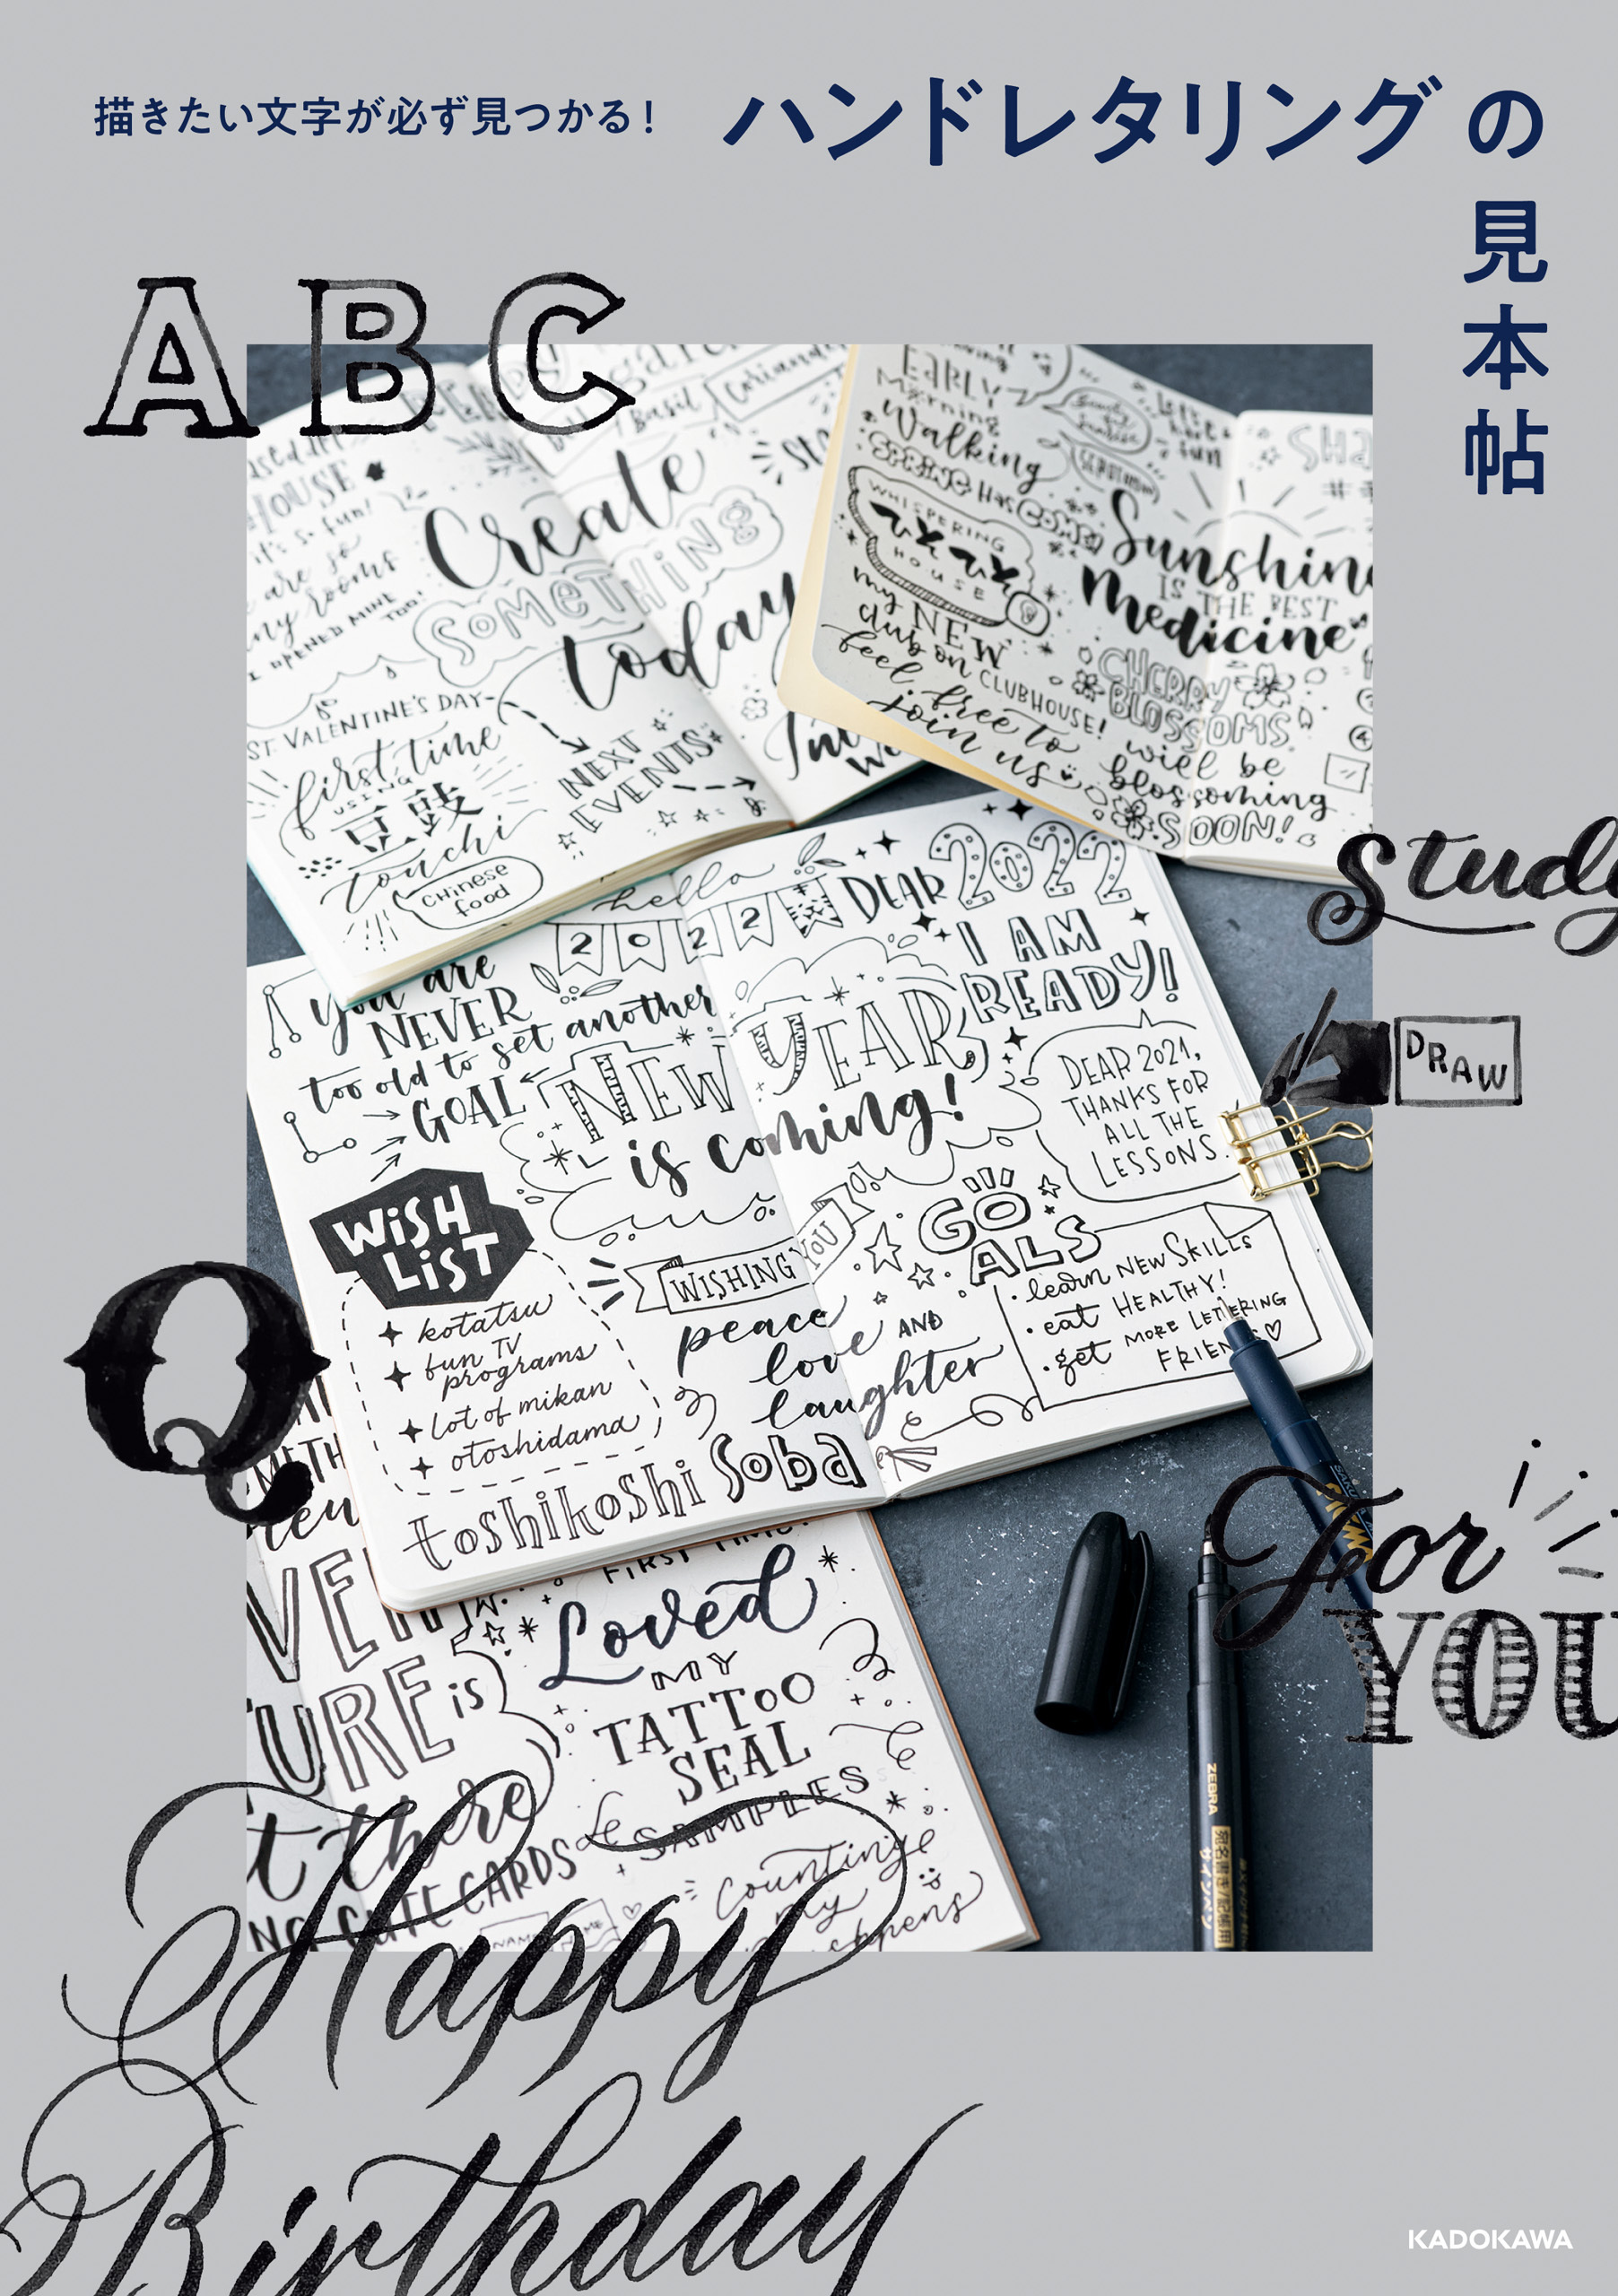 描きたい文字が必ず見つかる!
ハンドレタリングの
見本帖
ABC
HOUSE
it's so fun!
are so
my rooms
I OPENED MINE TOO!
Create
SOMETHING
today
Basil
Coriander
ST. VALENTINE'S DAY-
first time
USING
豆豉
touchi
CHINESE
food
NEXT
EVENTS
EARLY
Morning
Walking
SPRING HAS COME!
WHISPERING
HOUSE
my NEW
club on CLUBHOUSE!
feel free to
join us
fun
Sunshine
IS THE BEST
Medicine
CHERRY
BLOSSOMS
will be
blossoming
SOON!
Study
DRAW
hello
2022
DEAR 2022
I AM
READY!
you are
NEVER
too old to set another
GOAL
NEW YEAR
is coming!
DEAR 2021,
THANKS FOR
ALL THE
LESSONS.
WISH
LIST
kotatsu
fun TV
programs
lot of mikan
otoshidama
toshikoshi Soba
WISHING YOU
peace
love AND
laughter
GOALS
・learn NEW SKILLS
・eat HEALTHY!
・get MORE LETTERING
FRIENDS
Q
FIRST TIME
Loved
MY
TATTOO
SEAL
SAMPLES
Counting
my
URE is
t there
CUTE CARDS
NAME
ZEBRA
For
YOU
Happy
Birthday
KADOKAWA